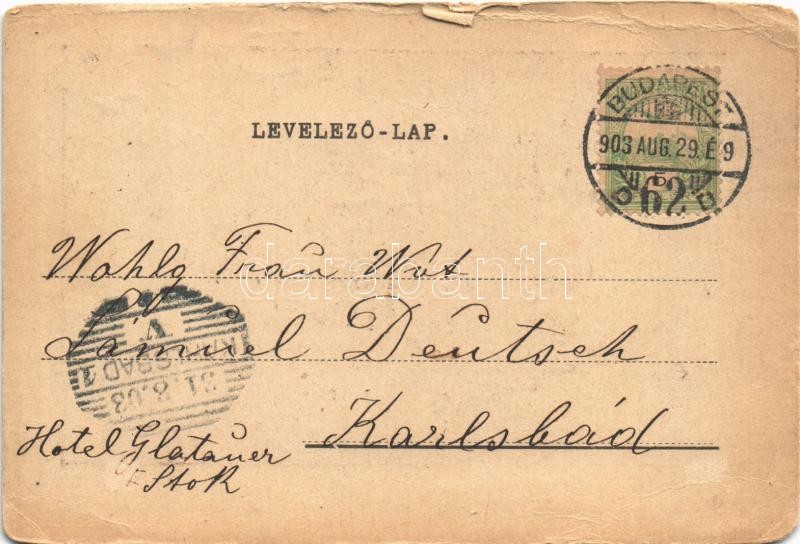 LEVELEZŐ-LAP.
BUDAPEST
903 AUG. 29. É 9
62
Wohlg Frau Wwt
Sámuel Deutsch
Karlsbád
Hotel Glatauer
Stok
KARLSBAD 1
31.8.03
V
darabanth